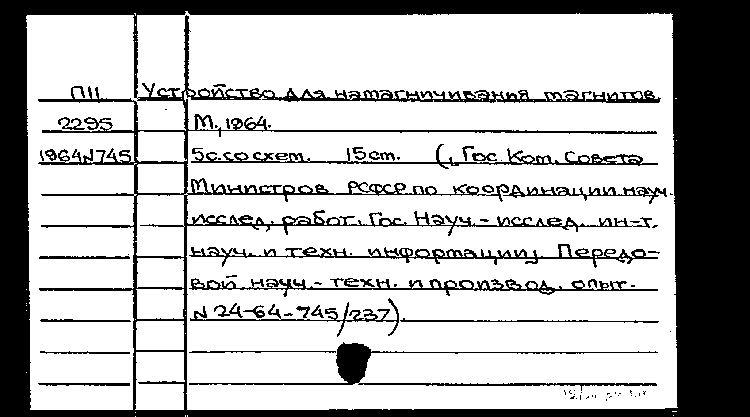 П11 Устройство для намагничивания магнитов
2295 М., 1964.
1964N745 5с.со схем. 15 см. (, Гос. Ком. Совета
Министров РСФСР по координации науч.
исслед. работ. Гос. Науч.-исслед. ин-т.
науч. и техн. информации, Передо-
вой науч.-техн. и производ. опыт.
N 24-64-745/237).